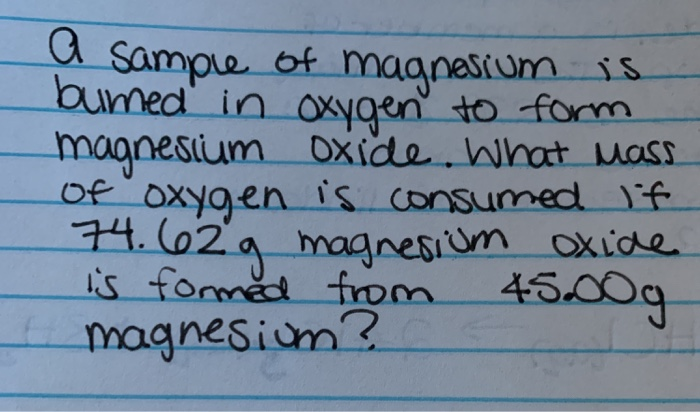 a sample of magnesium is
burned in oxygen to form
magnesium oxide. What mass
of oxygen is consumed if
74.62g magnesium oxide
is formed from 45.00g
magnesium?